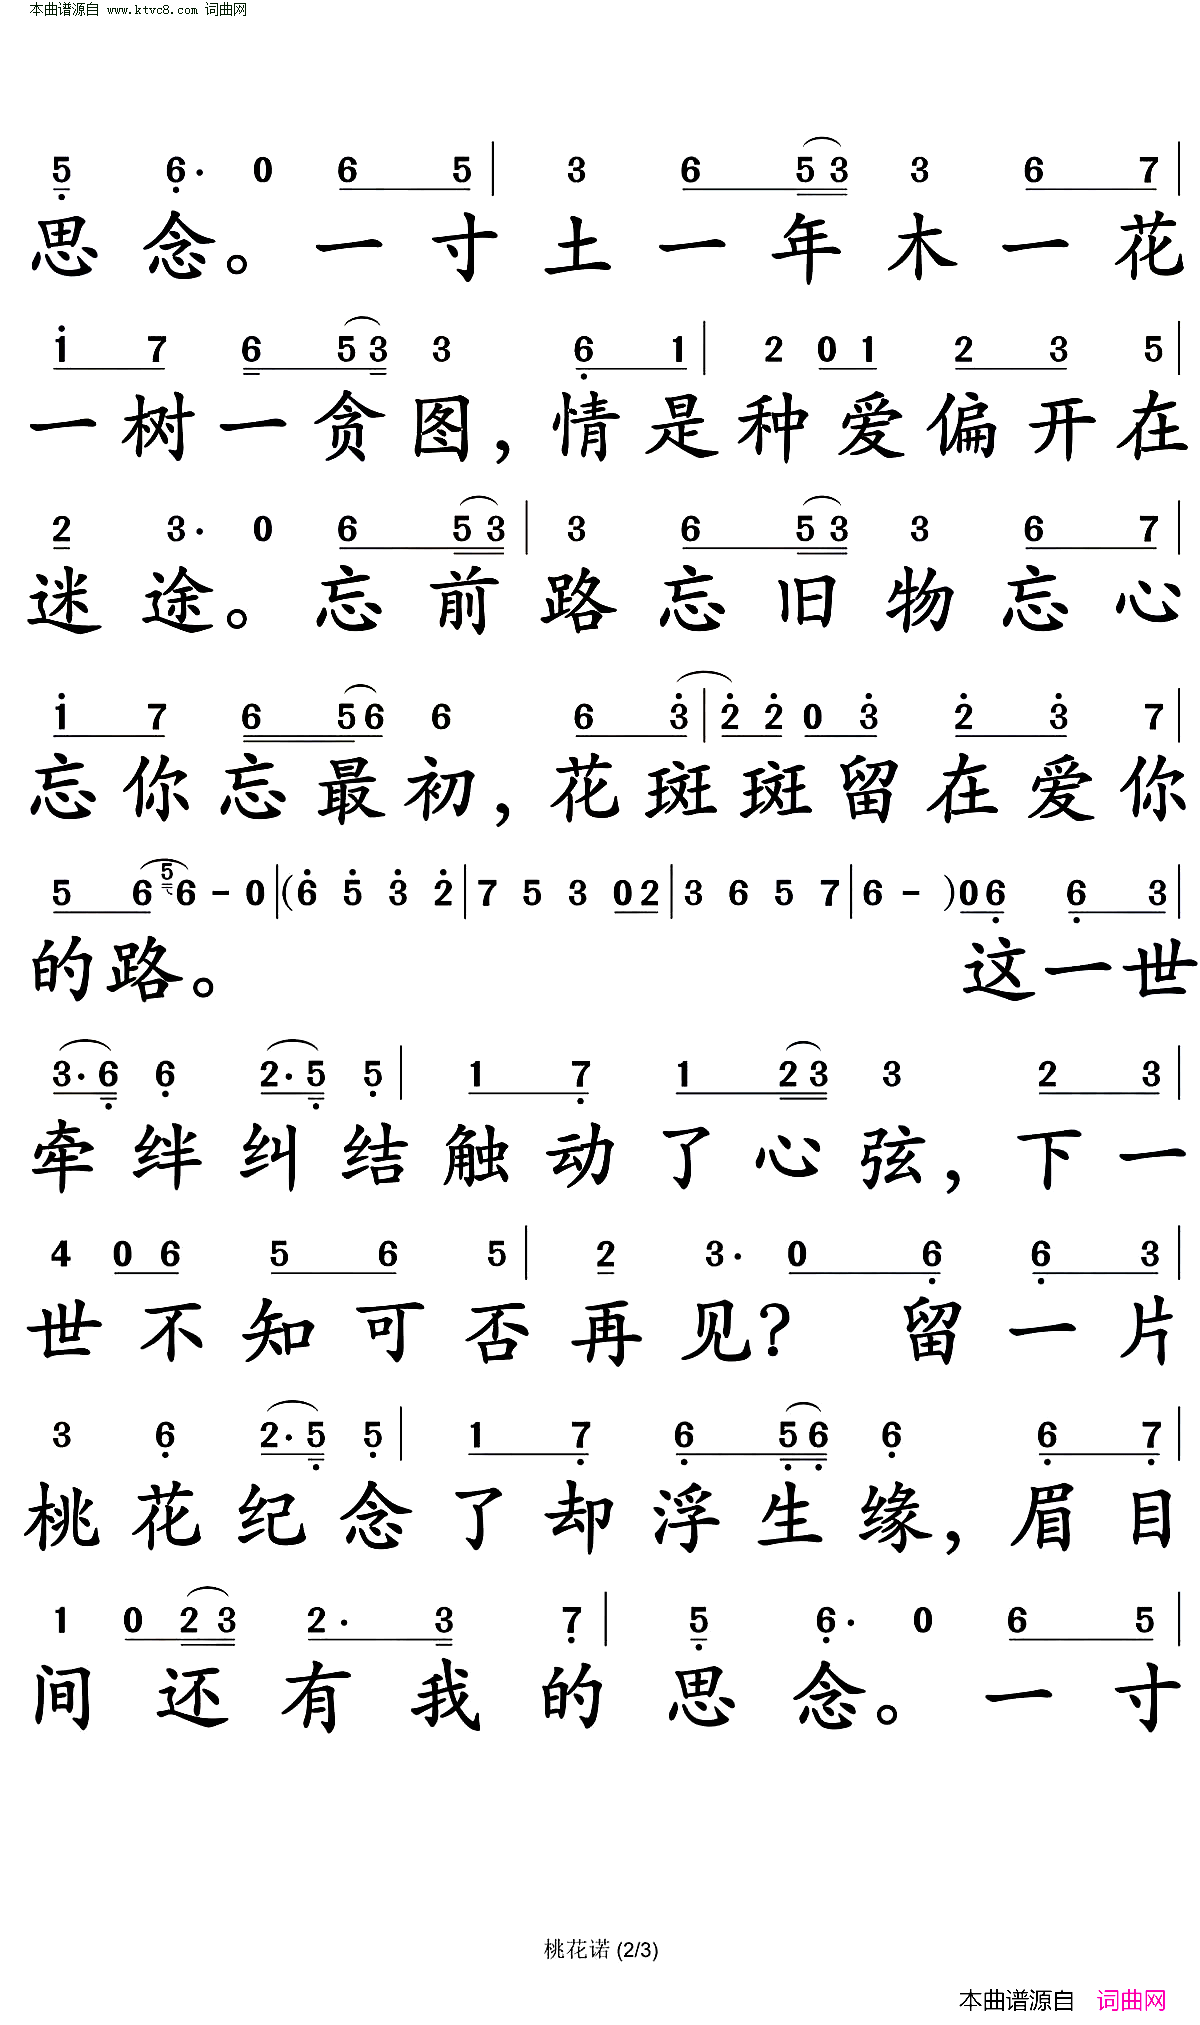 本曲谱源自 www.ktvc8.com 词曲网
5 6· 0 6 5 | 3 6 5 3 3 6 7 |
思念。一寸土一年木一花
1 7 6 5 3 3 6 1 | 2 0 1 2 3 5 |
一树一贪图，情是种爱偏开在
2 3· 0 6 5 3 | 3 6 5 3 3 6 7 |
迷途。忘前路忘旧物忘心
1 7 6 5 6 6 6 3 | 2 2 0 3 2 3 7 |
忘你忘最初，花斑斑留在爱你
5 6 5 6 - 0 | (6 5 3 2 | 7 5 3 0 2 | 3 6 5 7 | 6 - ) 0 6 6 3 |
的路。 这一世
3· 6 6 2· 5 5 | 1 7 1 2 3 3 2 3 |
牵绊纠结触动了心弦，下一
4 0 6 5 6 5 | 2 3· 0 6 6 3 |
世不知可否再见？ 留一片
3 6 2· 5 5 | 1 7 6 5 6 6 6 7 |
桃花纪念了却浮生缘，眉目
1 0 2 3 2· 3 7 | 5 6· 0 6 5 |
间还有我的思念。一寸
桃花诺 (2/3)
本曲谱源自 词曲网